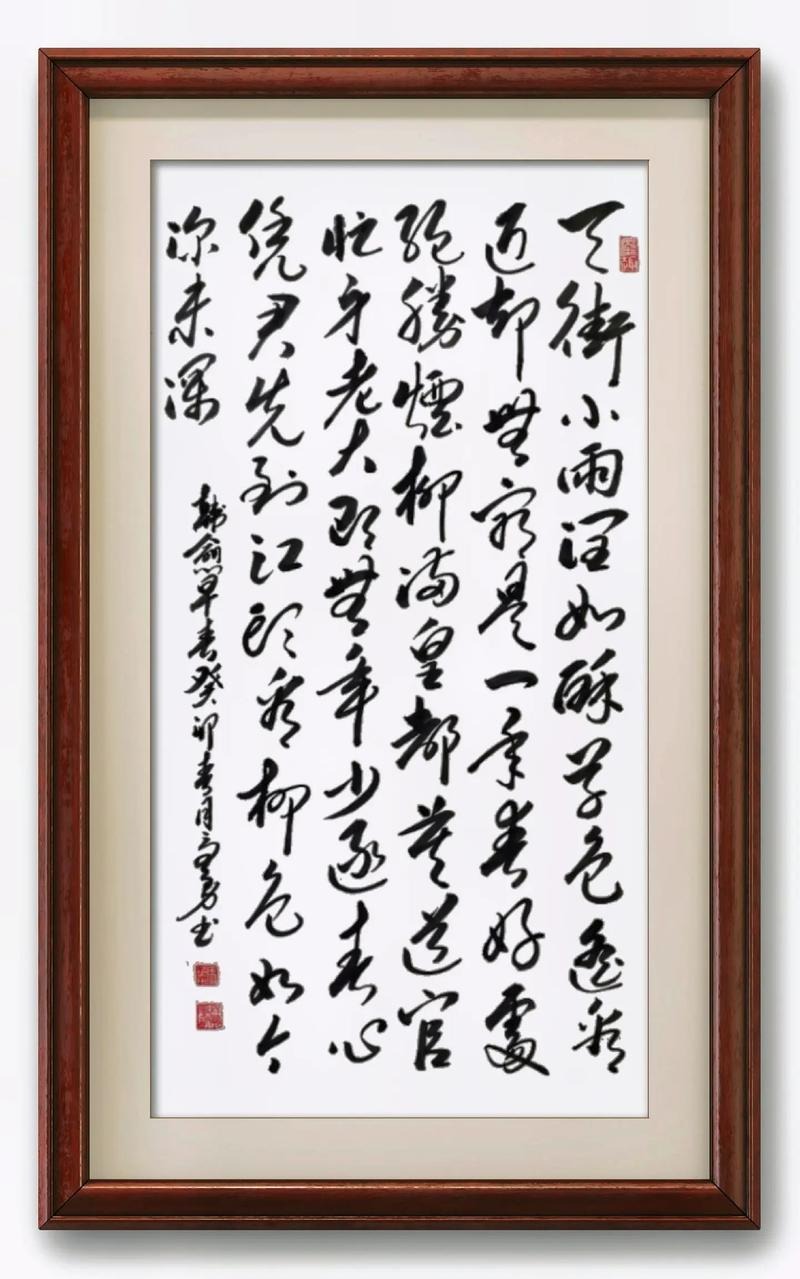 天街小雨潤如酥草色遙看
近却無最是一年春好處
絕勝煙柳滿皇都莫道官
忙身老大即無年少逐春心
凭君先到江頭看柳色如今
深未深
韓愈早春癸卯春月书